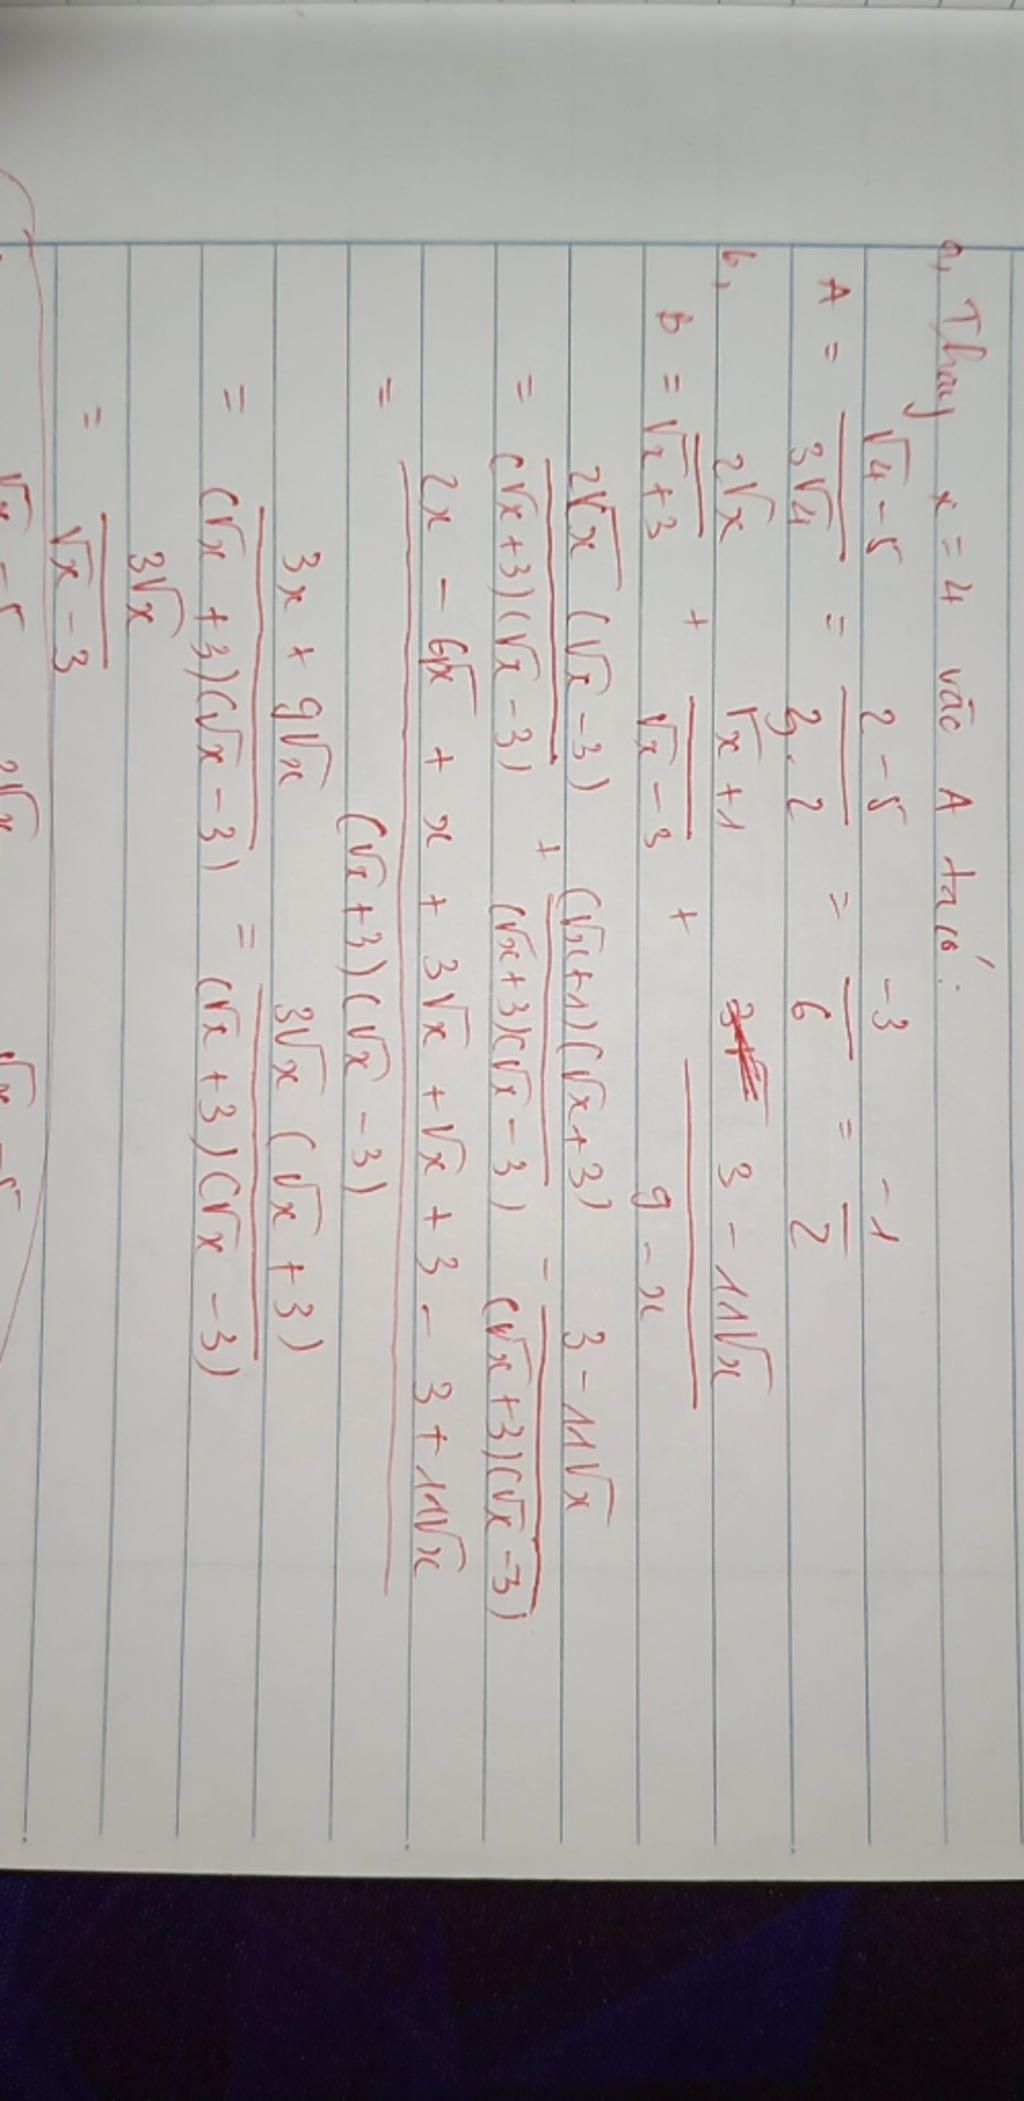 a, Thay x = 4 vào A ta có:
A = (√4 - 5)/(3√4) = (2 - 5)/(3.2) = -3/6 = -1/2
b,
B = 2√x/(√x + 3) + (√x + 1)/(√x - 3) + (3 - 11√x)/(9 - x)
= 2√x (√x - 3)/((√x + 3)(√x - 3)) + (√x + 1)(√x + 3)/((√x + 3)(√x - 3)) - (3 - 11√x)/((√x + 3)(√x - 3))
= (2x - 6√x + x + 3√x + √x + 3 - 3 + 11√x)/((√x + 3)(√x - 3))
= (3x + 9√x)/((√x + 3)(√x - 3)) = 3√x (√x + 3)/((√x + 3)(√x - 3))
= 3√x/(√x - 3)